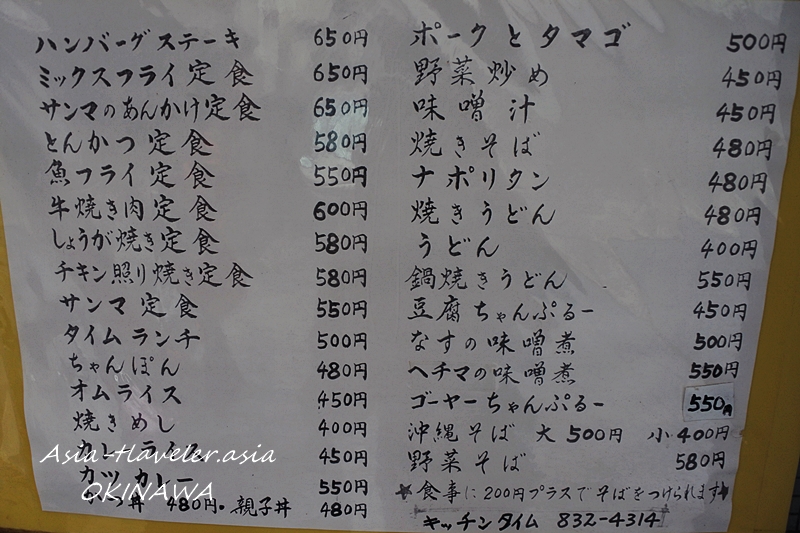 ハンバーグステーキ 650円
ミックスフライ定食 650円
サンマのあんかけ定食 650円
とんかつ定食 580円
魚フライ定食 550円
牛焼き肉定食 600円
しょうが焼き定食 580円
チキン照り焼き定食 580円
サンマ定食 550円
タイムランチ 500円
ちゃんぽん 480円
オムライス 450円
焼きめし 400円
カレーライス 450円
カツカレー 550円
丼 480円・親子丼 480円
ポークとタマゴ 500円
野菜炒め 450円
味噌汁 450円
焼きそば 480円
ナポリタン 480円
焼きうどん 480円
うどん 400円
鍋焼きうどん 550円
豆腐ちゃんぷるー 450円
なすの味噌煮 500円
ヘチマの味噌煮 550円
ゴーヤーちゃんぷるー 550円
沖縄そば 大 500円 小 400円
野菜そば 580円
★食事に200円プラスでそばをつけられます★
キッチンタイム 832-4314
Asia-traveler.asia
OKINAWA